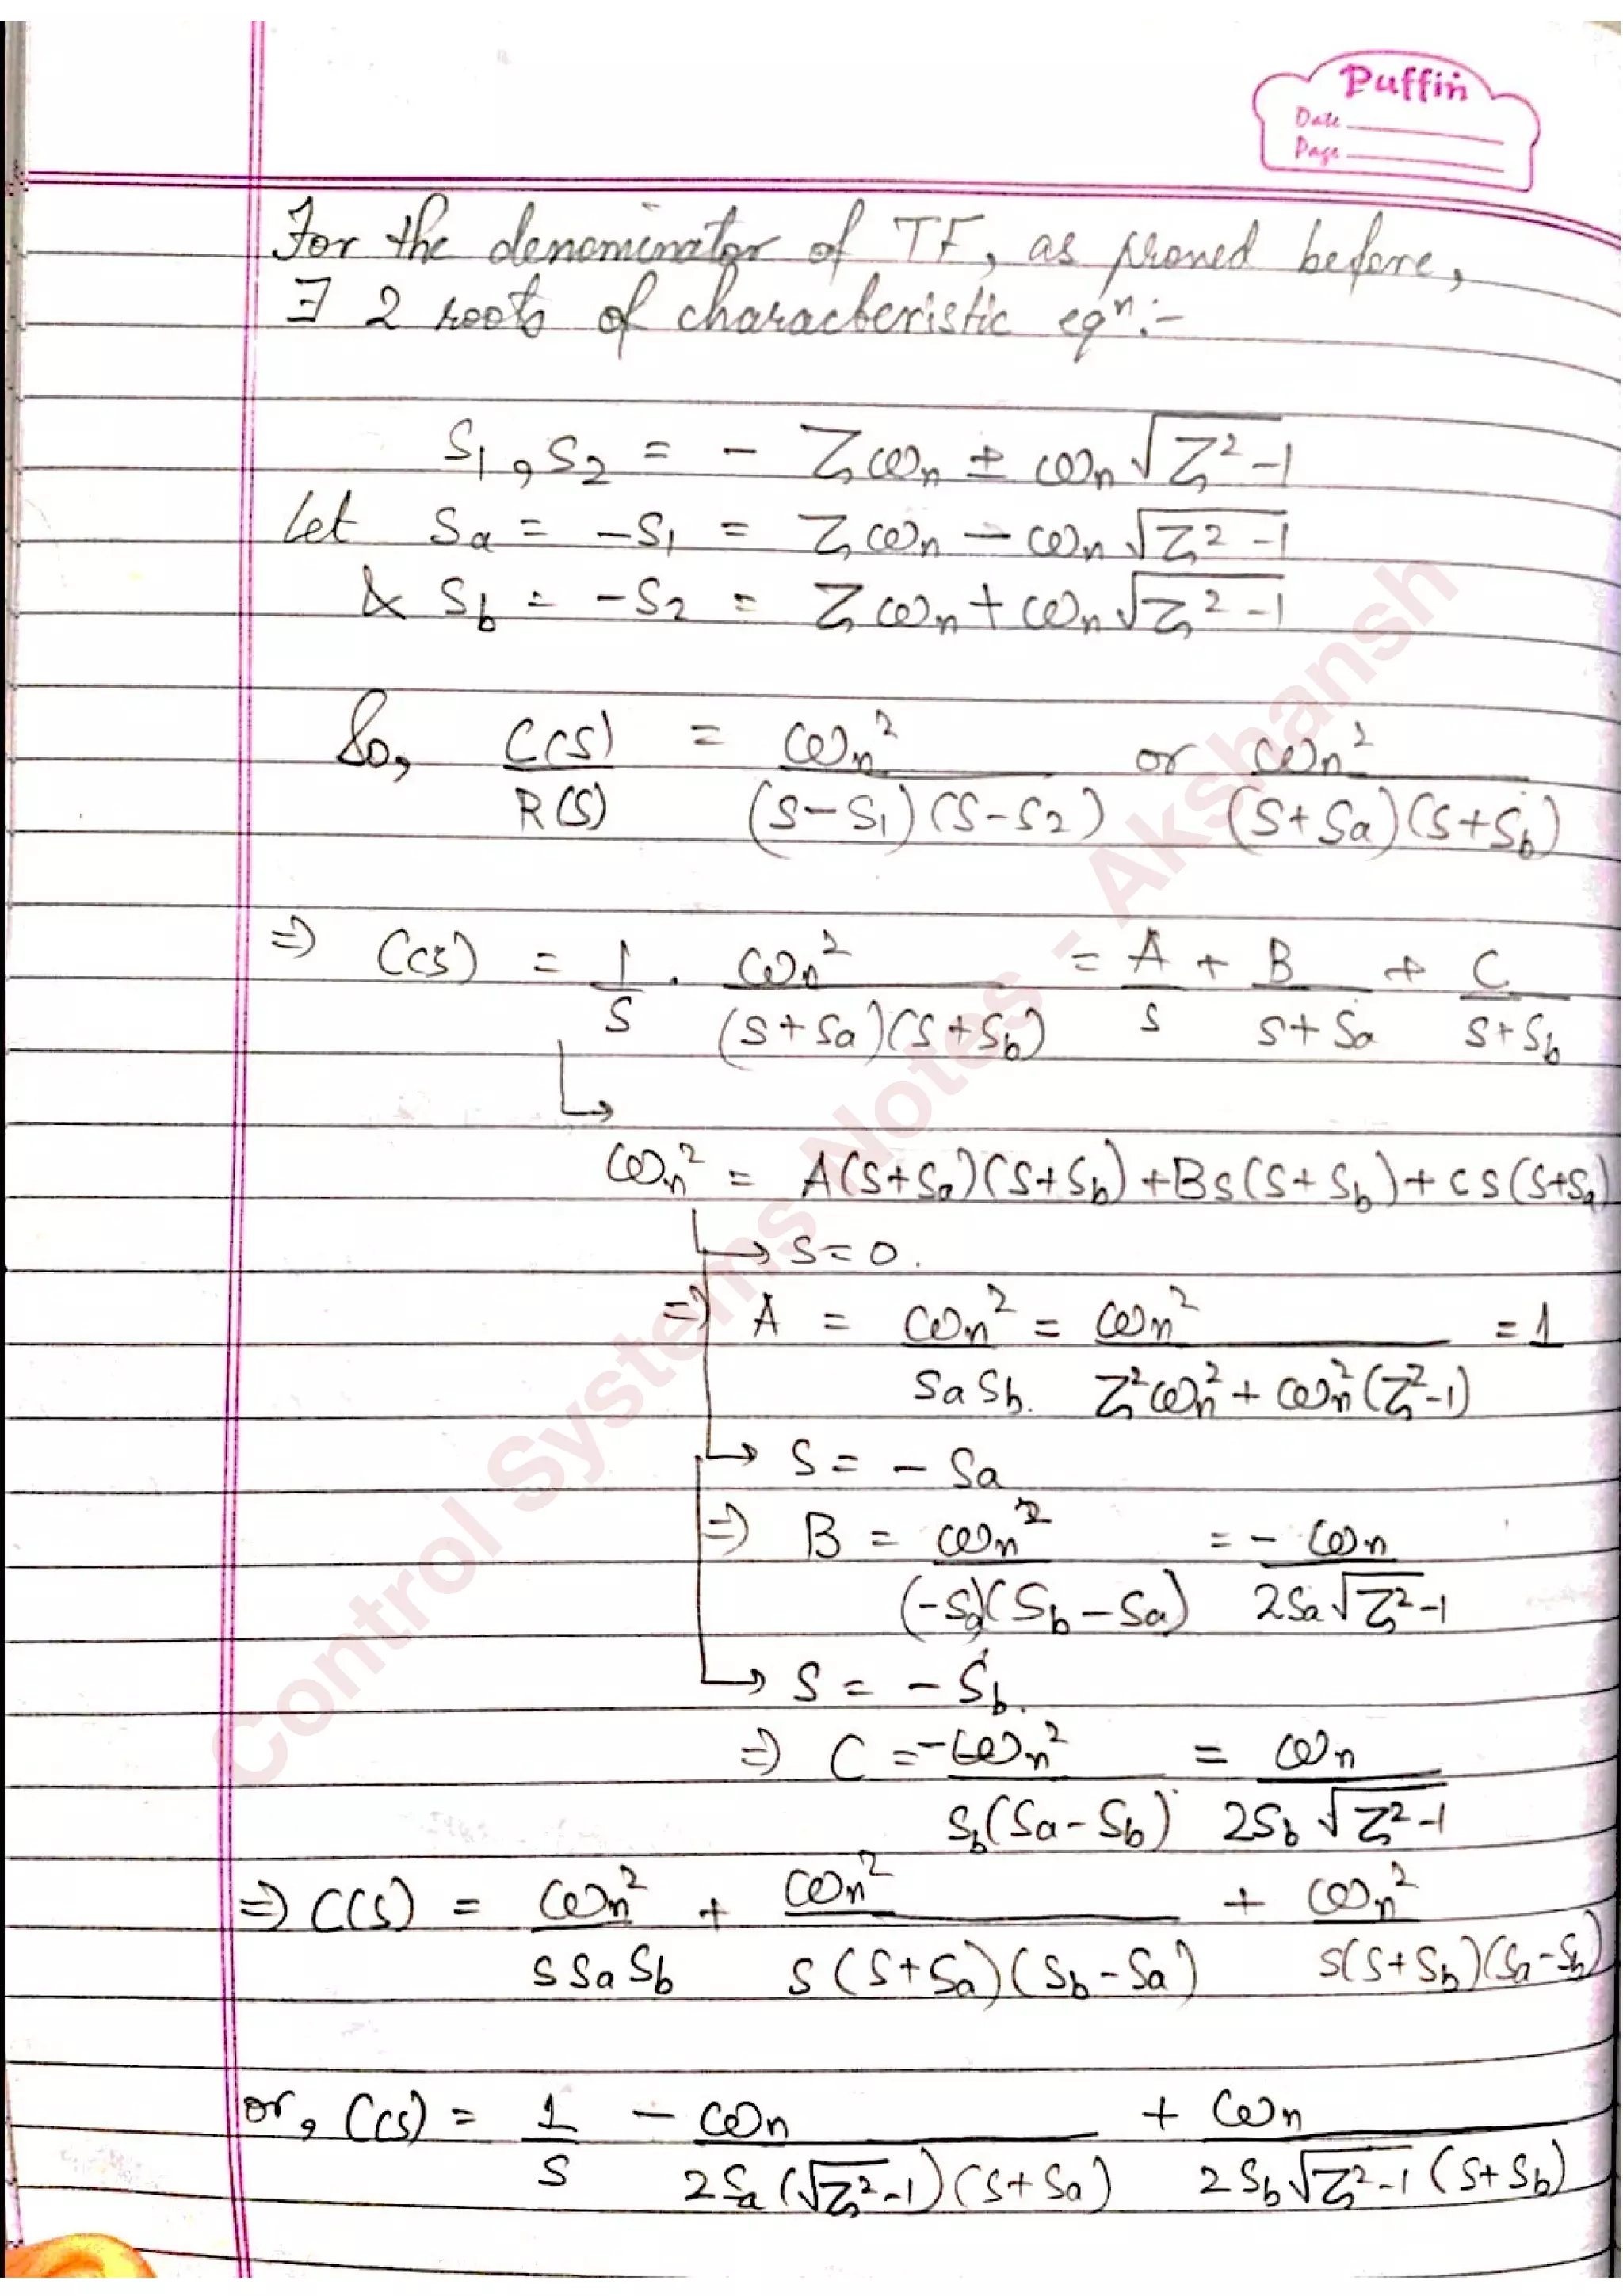 Puffin
Date
Page
For the denominator of TF, as proved before,
∃ 2 roots of characteristic eqⁿ:-
S₁, S₂ = - ζωₙ ± ωₙ√(ζ²-1)
Let Sa = -S₁ = ζωₙ - ωₙ√(ζ²-1)
& Sb = -S₂ = ζωₙ + ωₙ√(ζ²-1)
So, C(S)/R(S) = ωₙ²/((S-S₁)(S-S₂)) or ωₙ²/((S+Sa)(S+Sb))
⇒ C(S) = 1/S · ωₙ²/((S+Sa)(S+Sb)) = A/S + B/(S+Sa) + C/(S+Sb)
↳
ωₙ² = A(S+Sa)(S+Sb)+BS(S+Sb)+CS(S+Sa)
↳ S=0.
⇒ A = ωₙ²/(SaSb) = ωₙ²/(ζ²ωₙ²+ωₙ²(ζ²-1)) = 1
↳ S = -Sa
⇒ B = ωₙ²/((-Sa)(Sb-Sa)) = -ωₙ/(2Sa√(ζ²-1))
↳ S = -Sb.
⇒ C = -ωₙ²/(Sb(Sa-Sb)) = ωₙ/(2Sb√(ζ²-1))
⇒ C(S) = ωₙ²/(S Sa Sb) + ωₙ²/(S(S+Sa)(Sb-Sa)) + ωₙ²/(S(S+Sb)(Sa-Sb))
or, C(S) = 1/S - ωₙ/(2Sa(√(ζ²-1))(S+Sa)) + ωₙ/(2Sb√(ζ²-1)(S+Sb))
Control Systems Notes - Akshansh